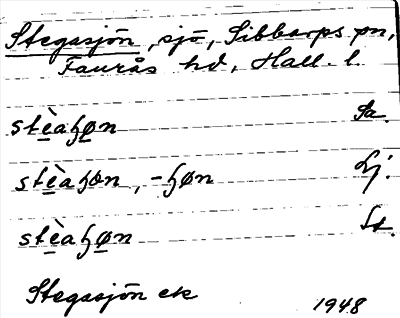 Stegasjön, sjö, Sibbarps sn,
Faurås hd, Hall. l.
stèaɧøn Sa.
stèaɧön, -ɧøn Lj.
stèaɧøn St.
Stegasjön ek
1948